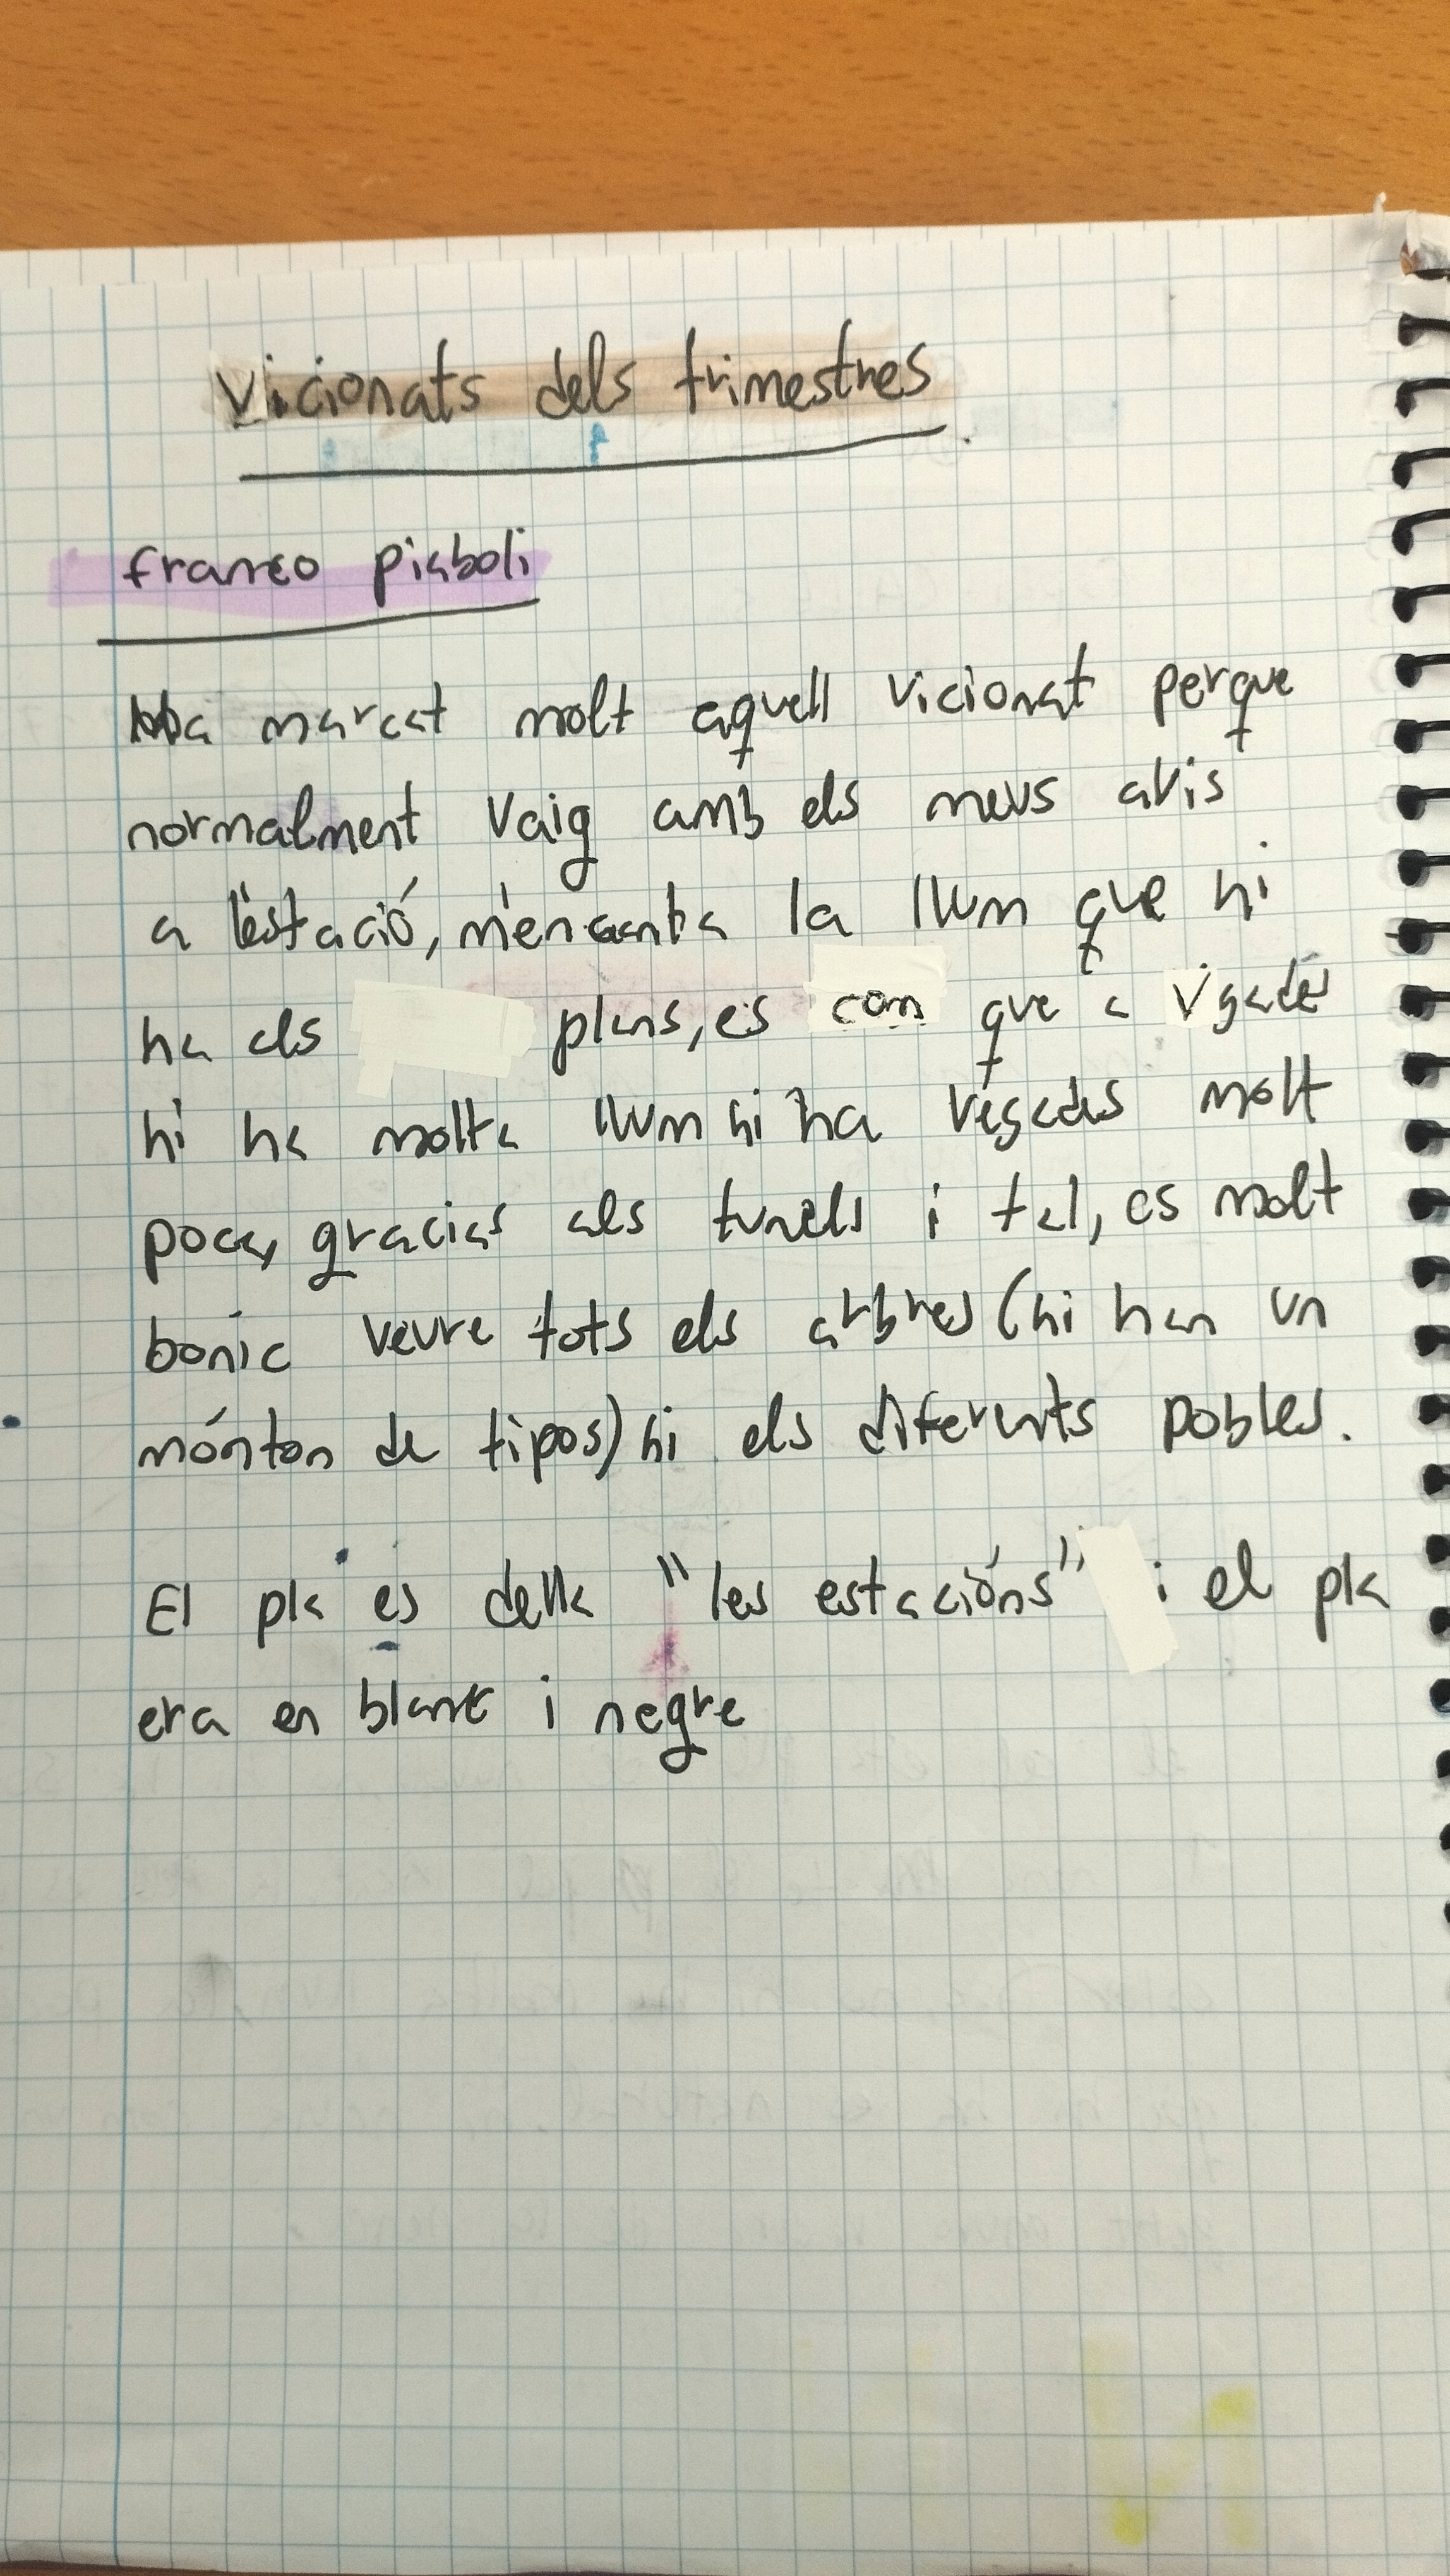 Vicionats dels trimestres.
franco piaboli
ha marcat molt aquell vicionat perque
normalment vaig amb els meus avis
a l'estació, m'encanta la llum que hi
ha els plans, es com que a vgades
hi ha molta llum hi ha vegades molt
poca, gracias als tunels i tal, es molt
bonic veure tots els arbres (hi han un
mónton de tipos) hi els diferents pobles.
El pla es della "les estacións" i el pla
era en blanc i negre